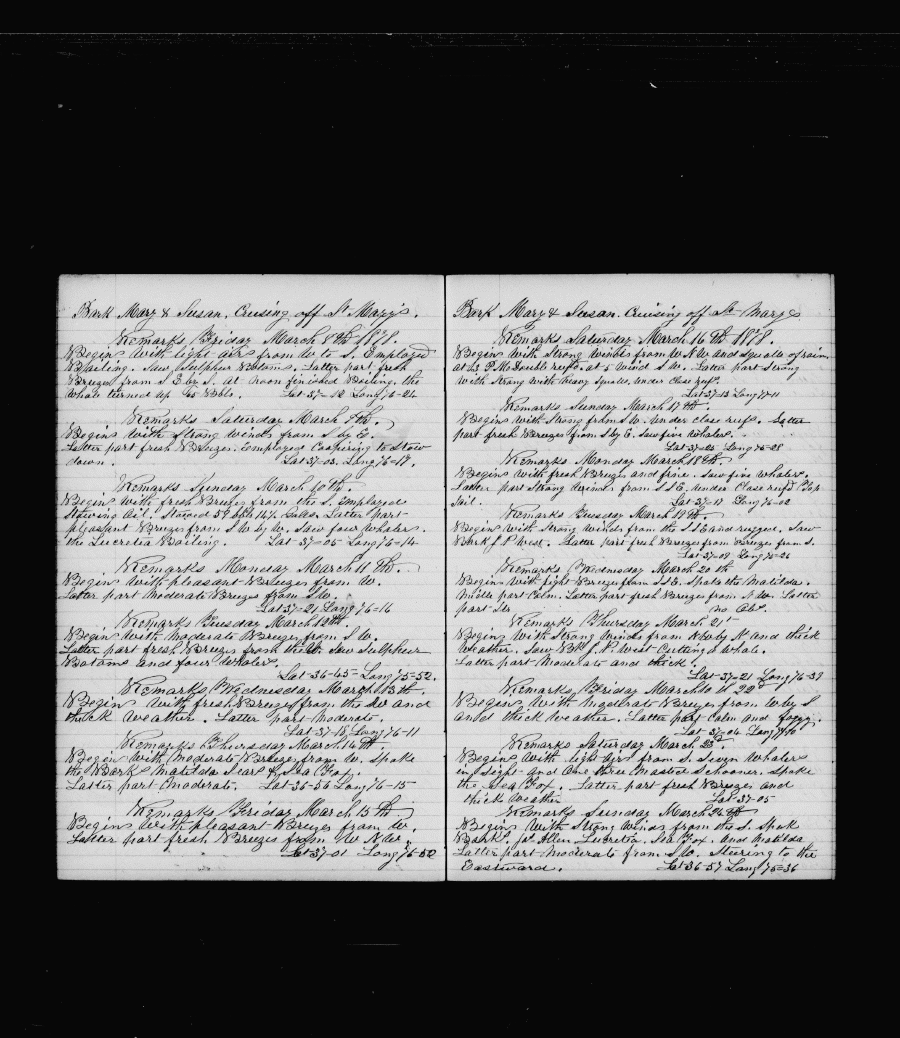 Bark Mary & Susan. Cruising off St Mary's.
Remarks Friday March 8th 1878.
Begins with light airs from W to S. Employed
Boiling. Saw Sulphur Bottoms. Latter part fresh
Breezes from S E by S. at noon finished Boiling. the
whale turned up 45 Bbls. Lat 37-12 Long 76-24
Remarks Saturday March 9th.
Begins with Strong winds from S by E.
Latter part fresh Breezes. Employed Coopering to Stow
down. Lat 37-03. Long 76-17.
Remarks Sunday March 10th.
Begins with fresh Breezes from the S. Employed
Stowing Oil. Stowed 59 bbls 14½ Galls. Latter part
pleasant Breezes from S W by W. Saw four whalers.
the Lucretia Boiling. Lat 37-05 Long 76-14
Remarks Monday March 11th.
Begins with pleasant Breezes from W.
Latter part Moderate Breezes from S W.
Lat 37-21 Long 76-16
Remarks Tuesday March 12th.
Begins with Moderate Breezes from S W.
Latter part fresh Breezes from the W. Saw Sulphur
Bottoms and four Whalers.
Lat 36-45 Long 75-52.
Remarks Wednesday March 13th.
Begins with fresh Breezes from the SW and
thick weather. Latter part moderate.
Lat 37-18 Long 76-11
Remarks Thursday March 14th.
Begins with Moderate Breezes from W. Spoke
the Bark Matilda Sears & Sea Fox.
Latter part Moderate. Lat 36-56 Long 76-15
Remarks Friday March 15th
Begins with pleasant Breezes from W.
Latter part fresh Breezes from W N W.
Lat 37-01 Long 76-52
Bark Mary & Susan. Cruising off St Marys
Remarks Saturday March 16th 1878.
Begins with Strong winds from W N W and Squalls of rain
at 4 P.M Double reefs. at 5 wind S W. Latter part Strong
with Strong with heavy Squalls, under close reefs.
Lat 37-13 Long 77-11
Remarks Sunday March 17th.
Begins with Strong from S W. under close reefs. Latter
part fresh Breezes from S by E. Saw five whalers.
Lat 37-25 Long 76-28
Remarks Monday March 18th.
Begins with fresh Breezes and fine. Saw five whalers.
Latter part Strong winds from S S E. under Close reef'd Top
Sail. Lat 37-17 Long 76-02
Remarks Tuesday March 19th
Begins with Strong winds from the S S E and rugged. Saw
Bark J. P. West. Latter part fresh Breezes from Breezes from S.
Lat 37-09 Long 75-26
Remarks Wednesday March 20th
Begins with light Breezes from S S E. Spoke the Matilda.
Middle part Calm. Latter part fresh Breezes from N W. Latter
part Do no Obs.
Remarks Thursday March 21st
Begins with Strong winds from N W by N and thick
Weather. Saw Bk J. P. West Cutting a whale.
Latter part Moderate and thick.
Lat 37-21 Long 76-39
Remarks Friday March 22d
Begins with Moderate Breezes from W by S
and thick Weather. Latter part Calm and foggy.
Lat 37-04 Long
Remarks Saturday March 23d.
Begins with light airs from S. Seven Whalers
in Sight and One three Masted Schooner. Spoke
the Sea Fox. Latter part fresh Breezes and
thick weather Lat 37-05
Remarks Sunday March 24th
Begins with Strong winds from the S. Spoke
Barks. Js Allen Lucretia. Sea Fox. And Matilda
Latter part Moderate from S W. Steering to the
Eastward. Lat 36-57 Long 75-36